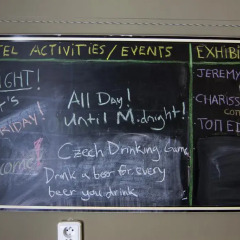 TEL ACTIVITIES/EVENTS
IGHT!
T'S
RIDAY!
come!
All Day!
Until Midnight!
Czech Drinking Game
Drink a beer for every
beer you drink
EXHIBI
JEREMY
CHARISS
CON
TOM ED